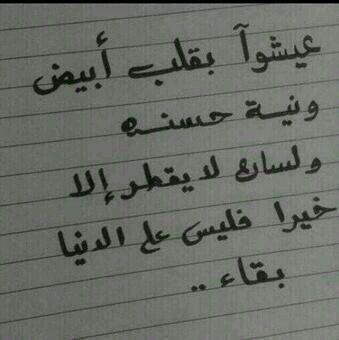 عيشوآ بقلب أبيض
ونية حسنه
ولسان لا يقطر إلا
خيرا فليس على الدنيا
بقاء ..